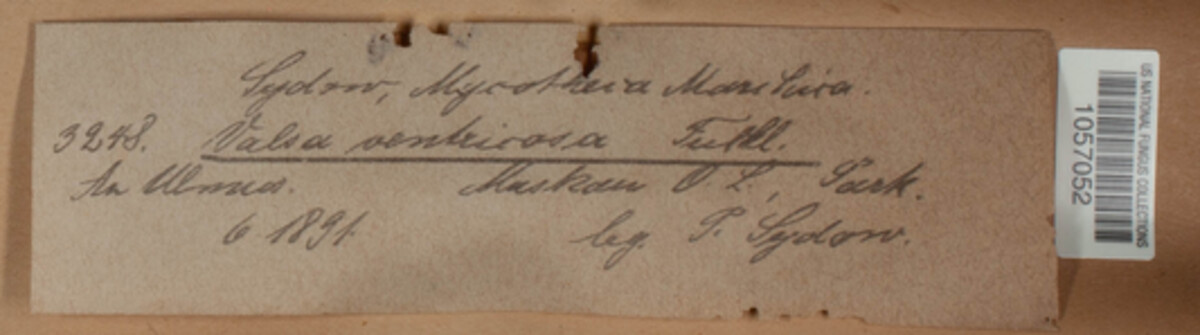 Sydow, Mycotheca Marchica.
3248. Valsa ventricosa Fuckl.
An Ulmus. Muskau O. L., Park.
6 1891. leg. P. Sydow.
US NATIONAL FUNGUS COLLECTIONS
1057052